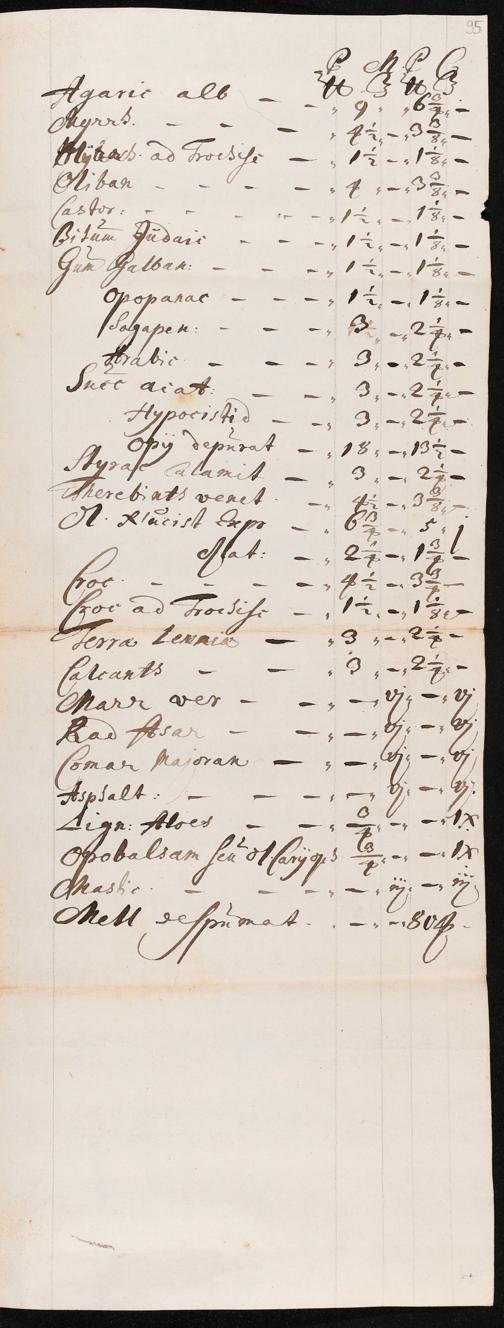 95
P M P C
℔ ʒ ℔ ʒ
Agaric alb — — „ 9 „ — 6 3/4 „ —
Myrrh. — — „ 4 1/2 „ — 3 3/8 „ —
ad Trochisc — „ 1 1/2 „ — 1 1/8 „ —
Oliban — — — — „ 4 „ — 3 3/8 „ —
Castor: — — — — „ 1 1/2 „ — 1 1/8 „ —
Bitum Judaic — — „ 1 1/2 „ — 1 1/8 „ —
Gum Galban: — — „ 1 1/2 „ — 1 1/8 „ —
Opopanac — — „ 1 1/2 „ — 1 1/8 „ —
Sagapen: — — „ 3 „ — 2 1/4 „ —
Arabic — — „ 3 „ — 2 1/4 „ —
Succ acat: — — „ 3 „ — 2 1/4 „ —
Hypocistid — „ 3 „ — 2 1/4 „ —
Opij depurat — „ 18 „ — 13 1/2 —
Styrac Calamit — „ 3 „ — 2 1/4 —
Therebinth venet — „ 4 1/2 „ — 3 3/8 „ —
Ol. Nucist Expr — „ 6 3/4 „ — 5 „ j
Mat: — „ 2 1/4 „ — 1 3/4
Croc. — — — — „ 4 1/2 „ — 3 3/4 —
Croc ad Trochisc — „ 1 1/2 „ — 1 1/8 „ —
Terra Lemnia — „ 3 „ — 2 1/4 „ —
Calcanth — — „ 3 „ — 2 1/4 „ —
Marr ver — — „ — „ vj „ — „ vj
Rad Asar — — „ — „ vj „ — „ vj
Comar Majoran — „ — „ vj „ — „ vj
Asphalt: — — — „ — „ vj „ — „ vj
Lign: Aloes — — „ 3/4 „ — „ — „ ix
Opobalsam seu Ol Caryoph 3/4 „ — „ — „ ix
Mastic. — — — „ — „ iij „ — „ iij
Mell despumat. . — „ — 804 —